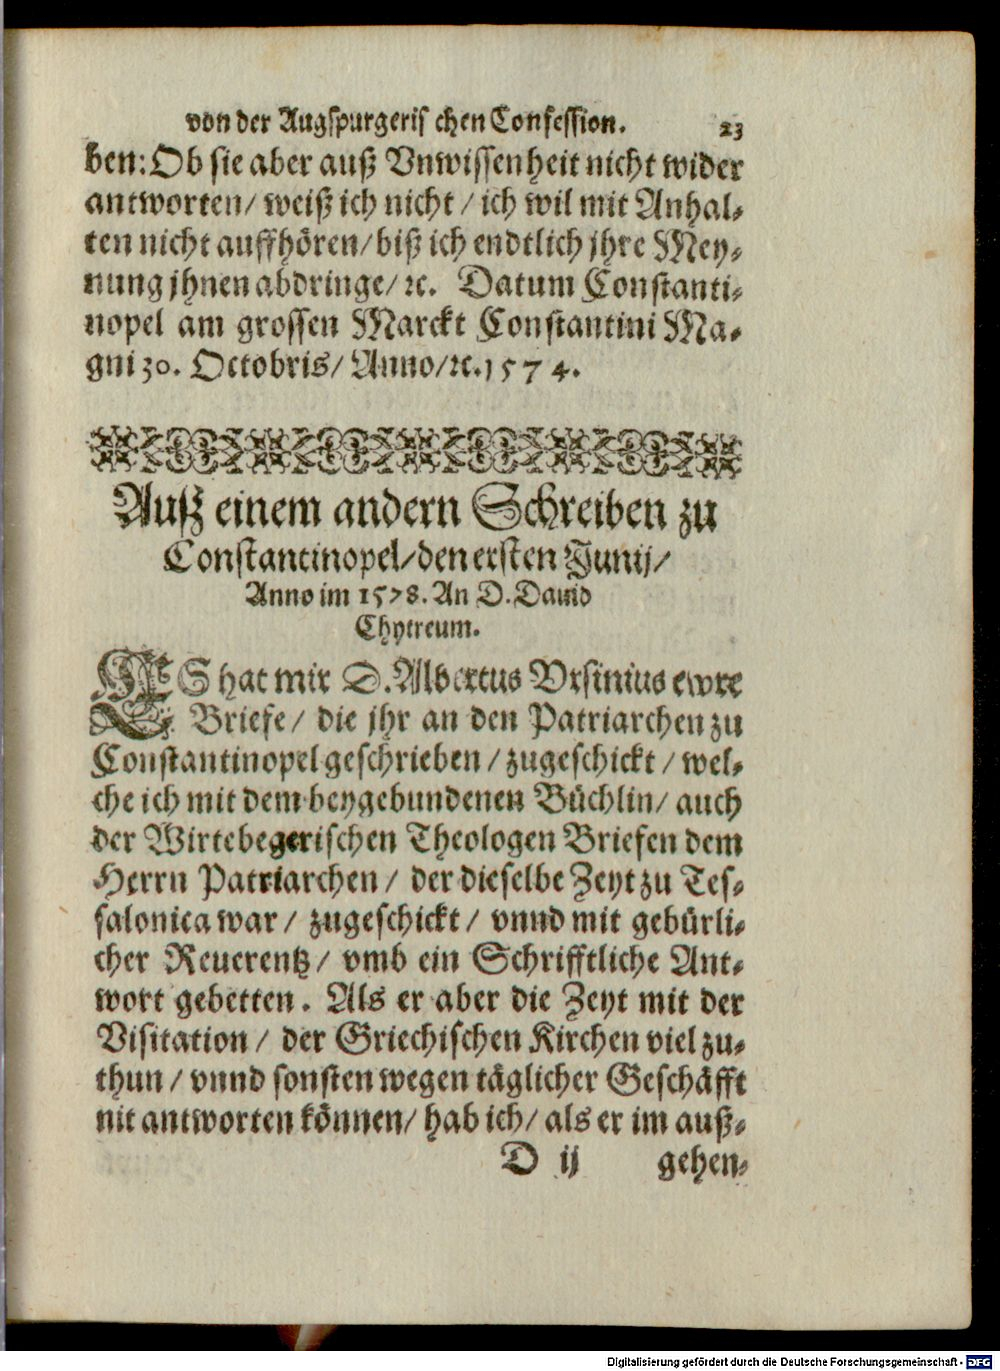 von der Augspurgeris chen Confession. 23
ben: Ob sie aber auß Vnwissenheit nicht wider
antworten/ weiß ich nicht / ich wil mit Anhal-
ten nicht auffhören/ biß ich endtlich jhre Mey-
nung jhnen abdringe/ ꝛc. Datum Constanti-
nopel am grossen Marckt Constantini Ma-
gni 30. Octobris/ Anno/ ꝛc. 1574.
Auß einem andern Schreiben zu
Constantinopel/ den ersten Junij/
Anno im 1578. An D. Dauid
Chytreum.
ES hat mir D. Albertus Vrsinius ewre
Briefe/ die jhr an den Patriarchen zu
Constantinopel geschrieben / zugeschickt / wel-
che ich mit dem beygebundenen Büchlin/ auch
der Wirtebegerischen Theologen Briefen dem
Herrn Patriarchen / der dieselbe Zeyt zu Tes-
salonica war / zugeschickt / vnnd mit gebürli-
cher Reuerentz / vmb ein Schrifftliche Ant-
wort gebetten. Als er aber die Zeyt mit der
Visitation / der Griechischen Kirchen viel zu-
thun / vnnd sonsten wegen täglicher Geschäfft
nit antworten können/ hab ich/ als er im auß-
D ij gehen-
Digitalisierung gefördert durch die Deutsche Forschungsgemeinschaft - DFG